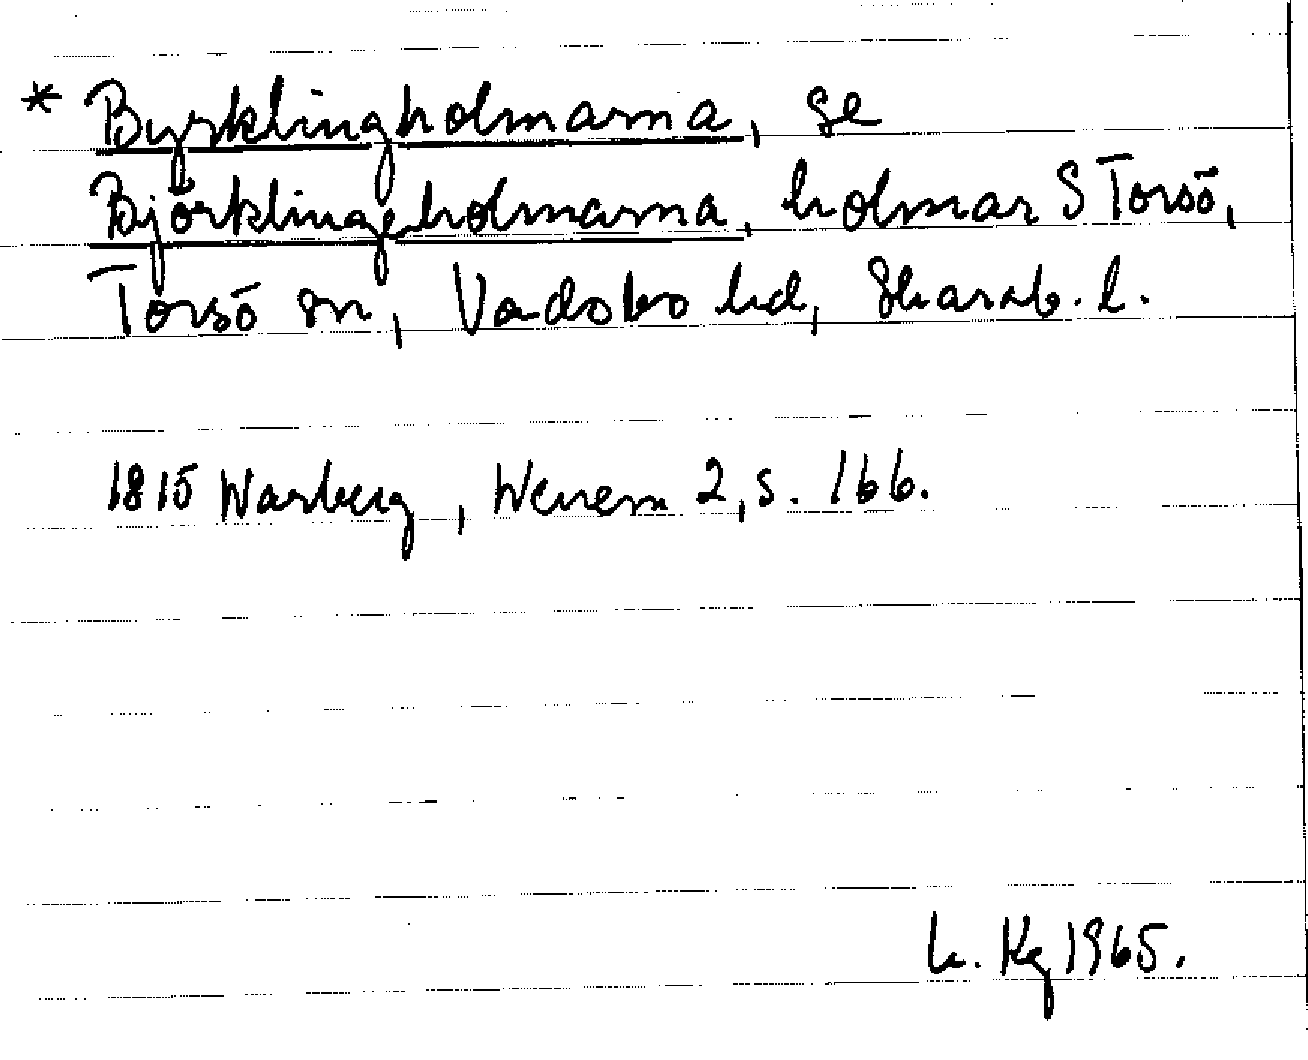 * Byrklingholmarna, se
Björklingeholmarna, holmar S Torsö,
Torsö sn, Vadsbo hd, Skarab. l.
1815 Warberg, Wenern 2, s. 166.
h. Kg 1965.